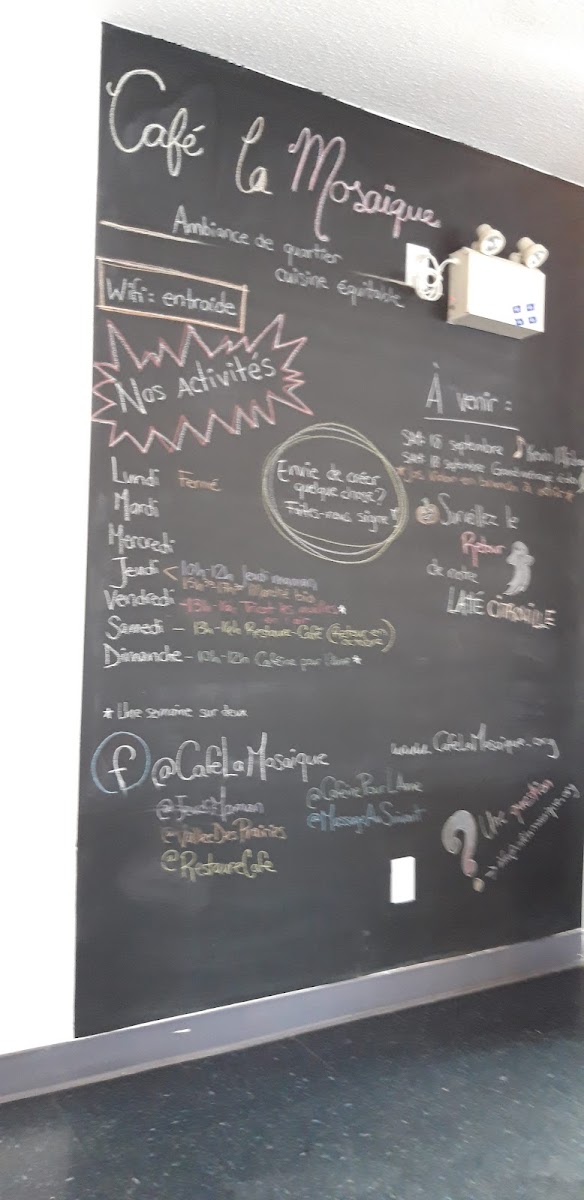 Café la Mosaïque
Ambiance de quartier
cuisine équitable
Wifi : entraide
Nos Activités
Lundi Fermé
Mardi
Mercredi
Jeudi < 10h-12h Jeudi maman
Marché bio
Vendredi -
Samedi - 13h-16h Restaure-Café (
Dimanche - 10h-12h Caféine pour l'âme *
* Une semaine sur deux
Envie de créer
quelque chose?
Faites-nous signe!
À venir :
SAM 18 septembre
SAM 18 septembre
Surveillez le
Retour
de notre
LATÉ CITROUILLE
@CafeLaMosaique
@JeudiMaman
@ValleeDesPrairies
@RestaureCafé
@CaféinePourL'Ame
@MessageAuSuivant
www.CafeLaMosaique.org
? Une question